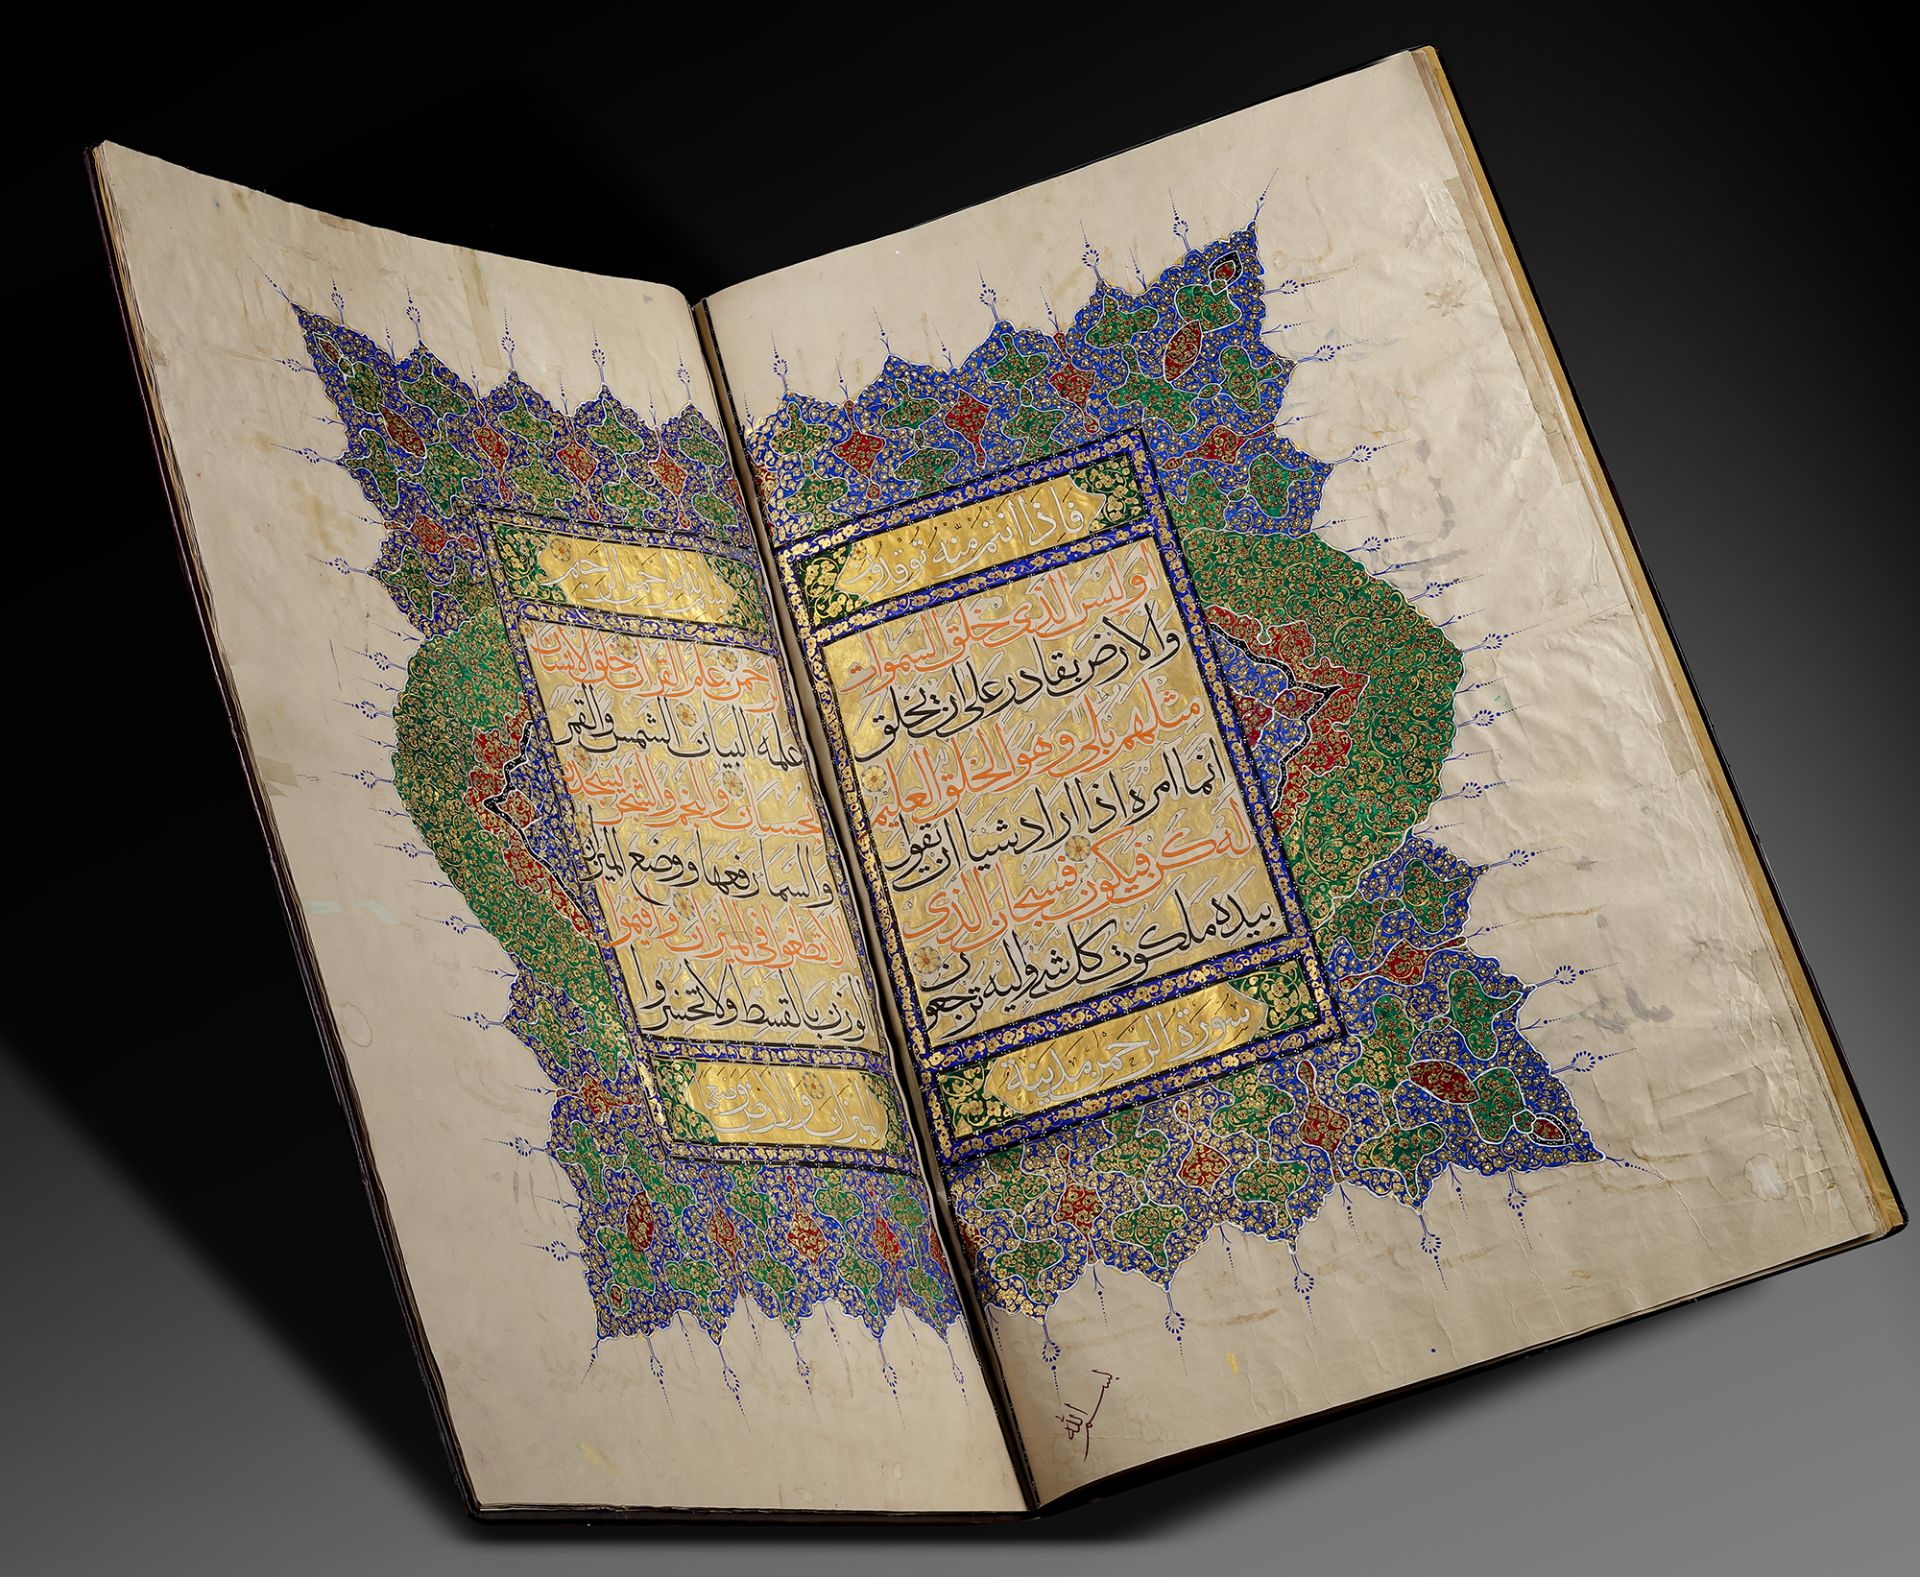 فاذا انتم منه توقدون
او ليس الذى خلق السموات
والارض بقادر على ان يخلق
مثلهم بلى وهو الخلق العليم
انما امره اذا اراد شيا ان يقول
له كن فيكون فسبحان الذى
بيده ملكوت كل شى واليه ترجعون
سورة الرحمن مدينة
بسم الله
بسم الله الرحمن الرحيم
الرحمن علم القران خلق الانسان
علمه البيان الشمس والقمر
بحسبان والنجم والشجر يسجدان
والسما رفعها ووضع الميزان
الا تطغوا فى الميزان واقيموا
الوزن بالقسط ولا تخسروا
الميزان والارض وضعها